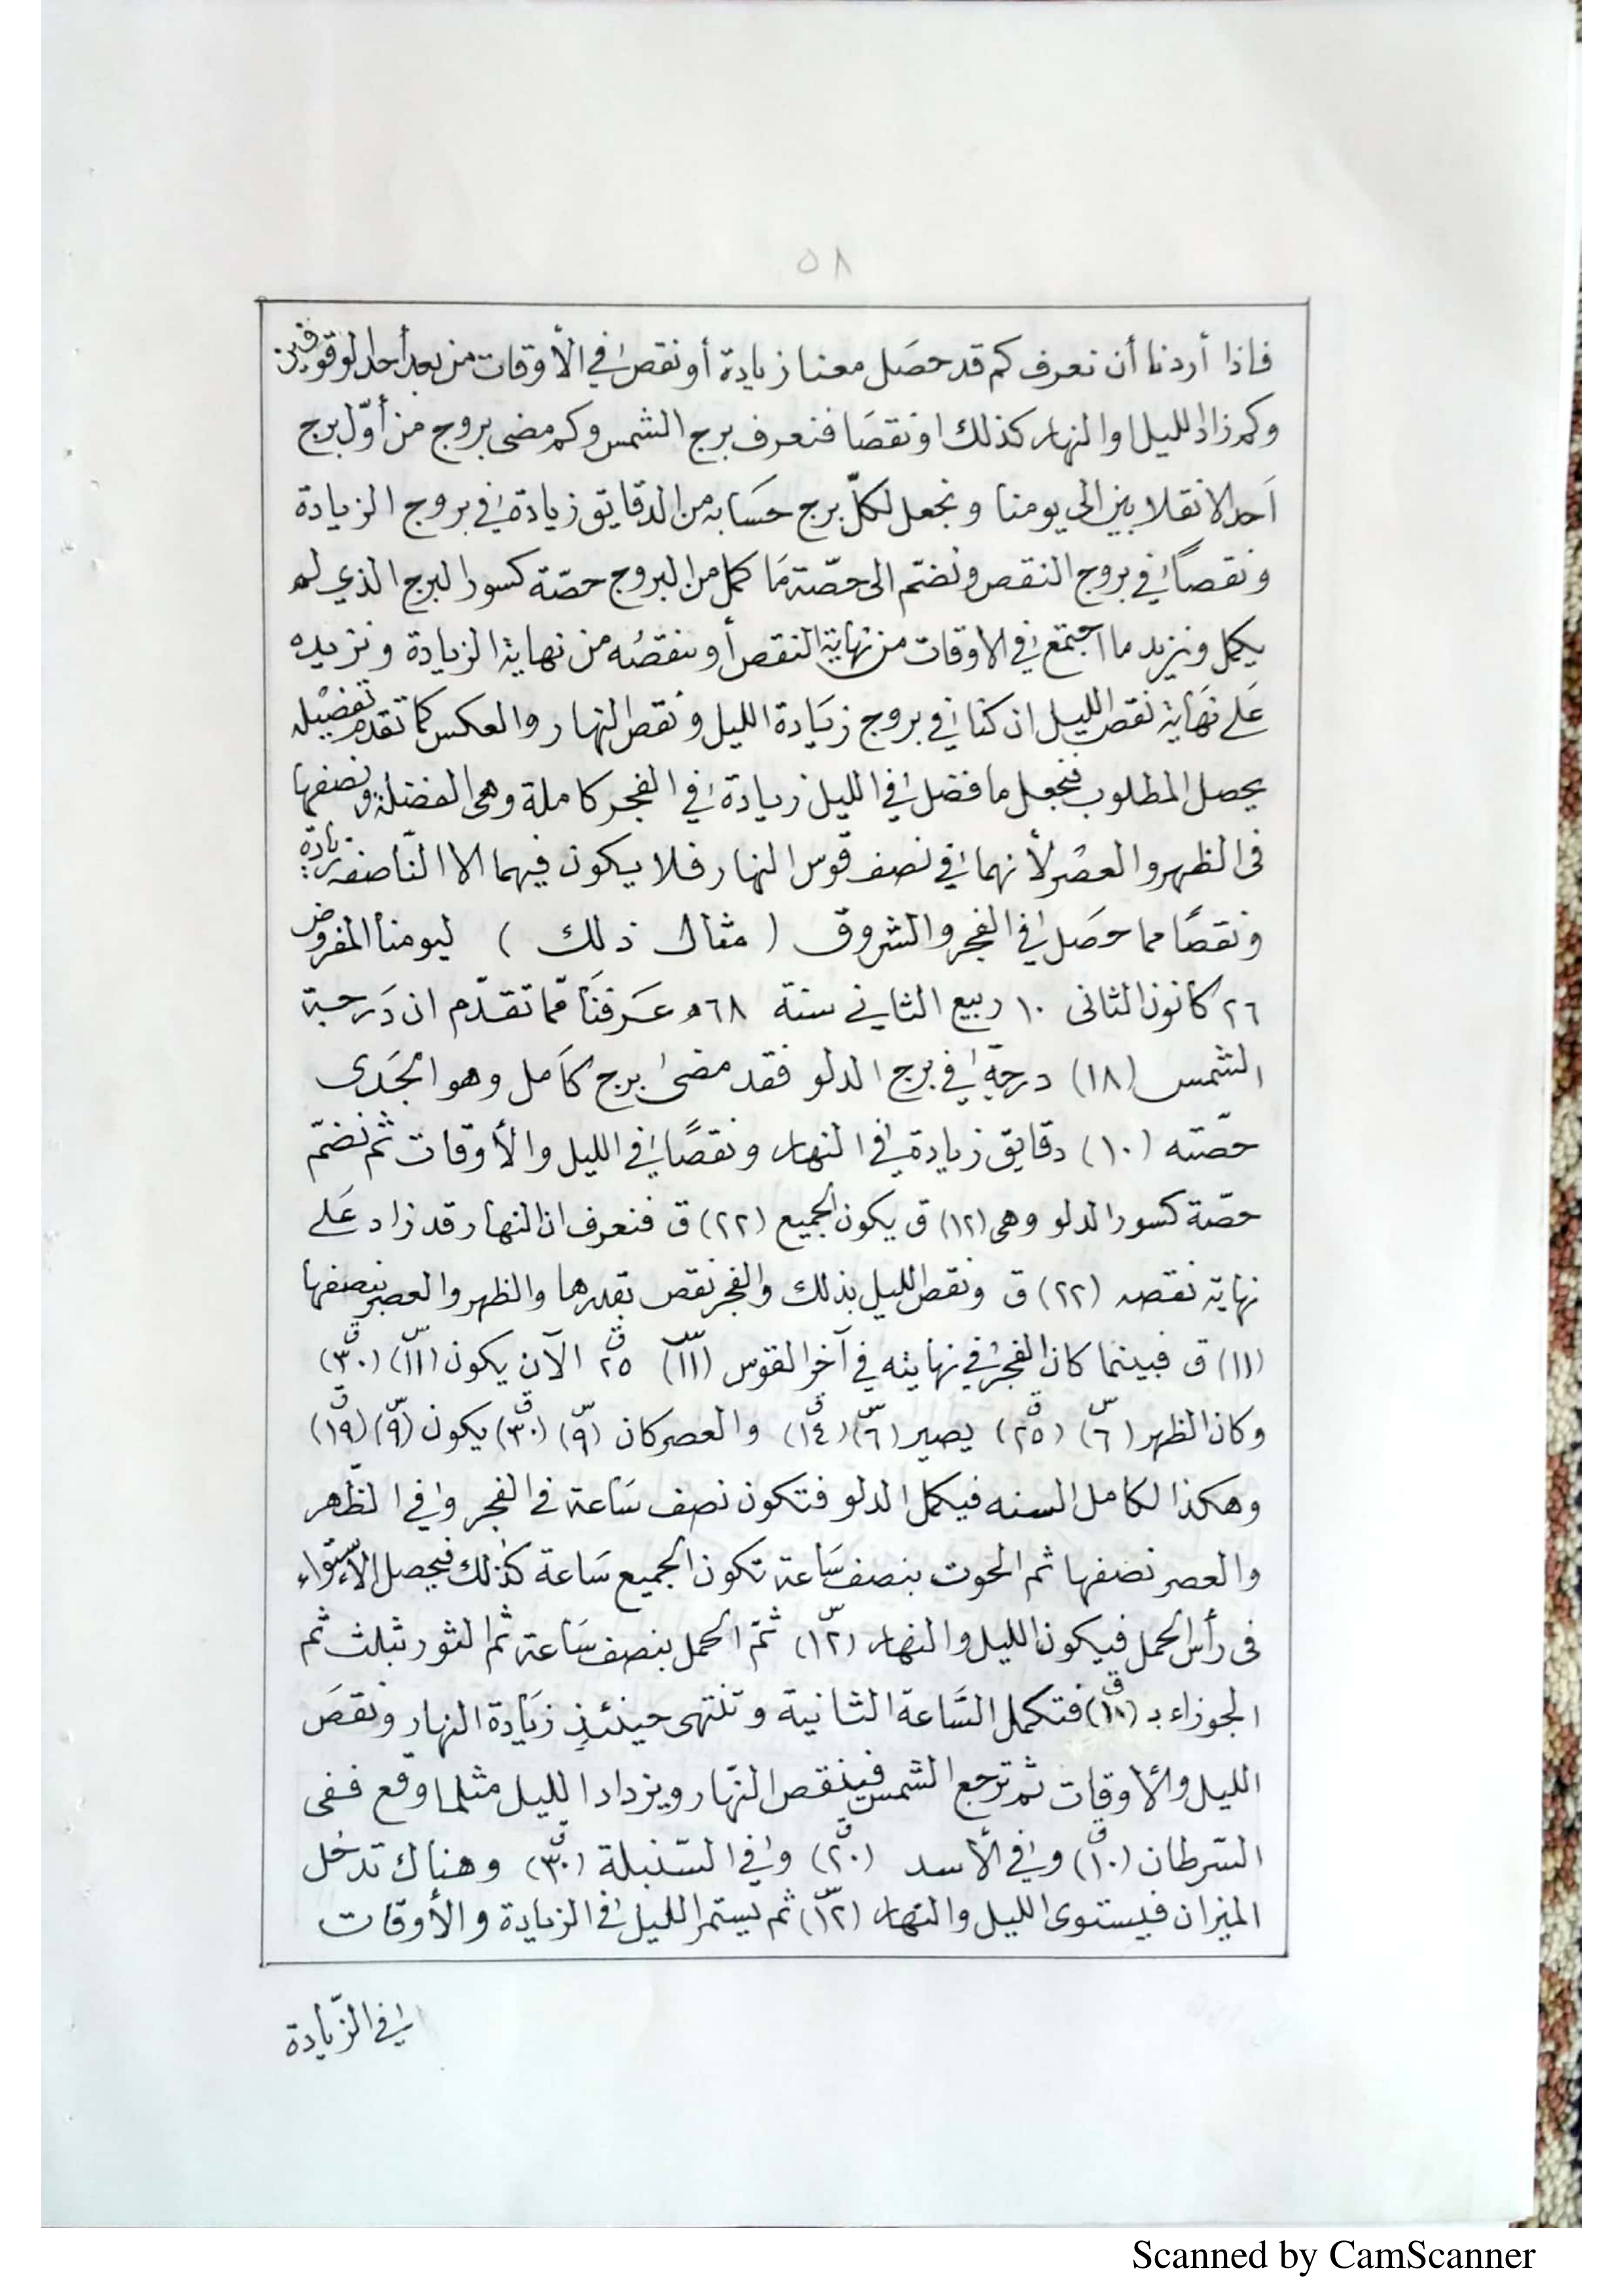 ٥٨
فاذا أردنا أن نعرف كم قد حصَل معنا زيادة أو نقص في الأوقات من بعد أحد الوقوفين
وكم زاد الليل او النهار كذلك او نقصَا فنعرف برج الشمس وكم مضى بروج من أوّل برج
اَحد الانقلابين الى يومنا ونجعل لكلّ برج حسَابه من الدقايق زيادة في بروج الزيادة
ونقصاً في بروج النقص ونضمّ الى حصّة مَا كمل من البروج حصّة كسور البرج الذي لم
يكمل ونزيد ما اجتمع في الاوقات من نهاية النقص أو ننقصُه من نهاية الزيادة ونزيده
عَلى نهَاية نقص الليل ان كنا في بروج زيَادة الليل ونقص النهار والعكس كما تقدم تفصيْله
يحصل المطلوب فنجعل ما فضل في الليل زيادة في الفجر كاملة وهى الفضلة ونصفها
فى الظهر والعصْر لأنهما في نصف قوس النهار فلا يكون فيهما الا النّاصفه زيادة
ونقصًا مما حصَل في الفجر والشروق (مثال ذلك) ليومنا المفروض
٢٦ كانون الثانى ١٠ ربيع الثاني سنة ٦٨ھ عَرفنَا ممّا تقدّم ان دَرجة
الشمس (١٨) درجةً في برج الدلو فقد مضى برج كاَمل وهو الجَدى
حصّته (١٠) دقايق زيادة في النهار ونقصًا في الليل والأوقات ثم نضمّ
حصّة كسور الدلو وهى (١٢) ق يكون الجميع (٢٢) ق فنعرف ان النهار قد زاد عَلى
نهاية نقصه (٢٢) ق ونقص الليل بذلك والفجر نقص بقدرها والظهر والعصر بنصفها
(١١) ق فبينما كان الفجر في نهايته في آخر القوس (١١س) ٢٥ق الآن يكون (١١س) (٣٠ق)
وكان الظهر (٦س) (٢٥ق) يصير (٦س) (١٤ق) والعصر كان (٩س) (٣٠ق) يكون (٩س) (١٩ق)
وهكذا لكامل السنه فيكمل الدلو فتكون نصف سَاعة في الفجر وفي الظّهر
والعصر نصفها ثم الحوت بنصف سَاعة تكون الجميع سَاعة كذلك فيحصل الاستواء
فى رأس الحمل فيكون الليل والنهار (١٢س) ثمّ الحمل بنصف سَاعة ثم الثور بثلث ثم
الجوزاء بـ (١٠ق) فتكمل السَّاعة الثانية وتنتهى حينئذٍ زيَادة النهار ونقصَ
الليل والأوقات ثم ترجع الشمس فينقص النّهار ويزداد الليل مثلما وقع ففى
السّرطان (١٠ق) وفي الأسد (٢٠ق) وفي السّنبلة (٣٠ق) وهناك تدخل
الميزان فيستوى الليل والنهار (١٢س) ثم يستمر الليل في الزيادة والأوقات
في الزّيادة
Scanned by CamScanner